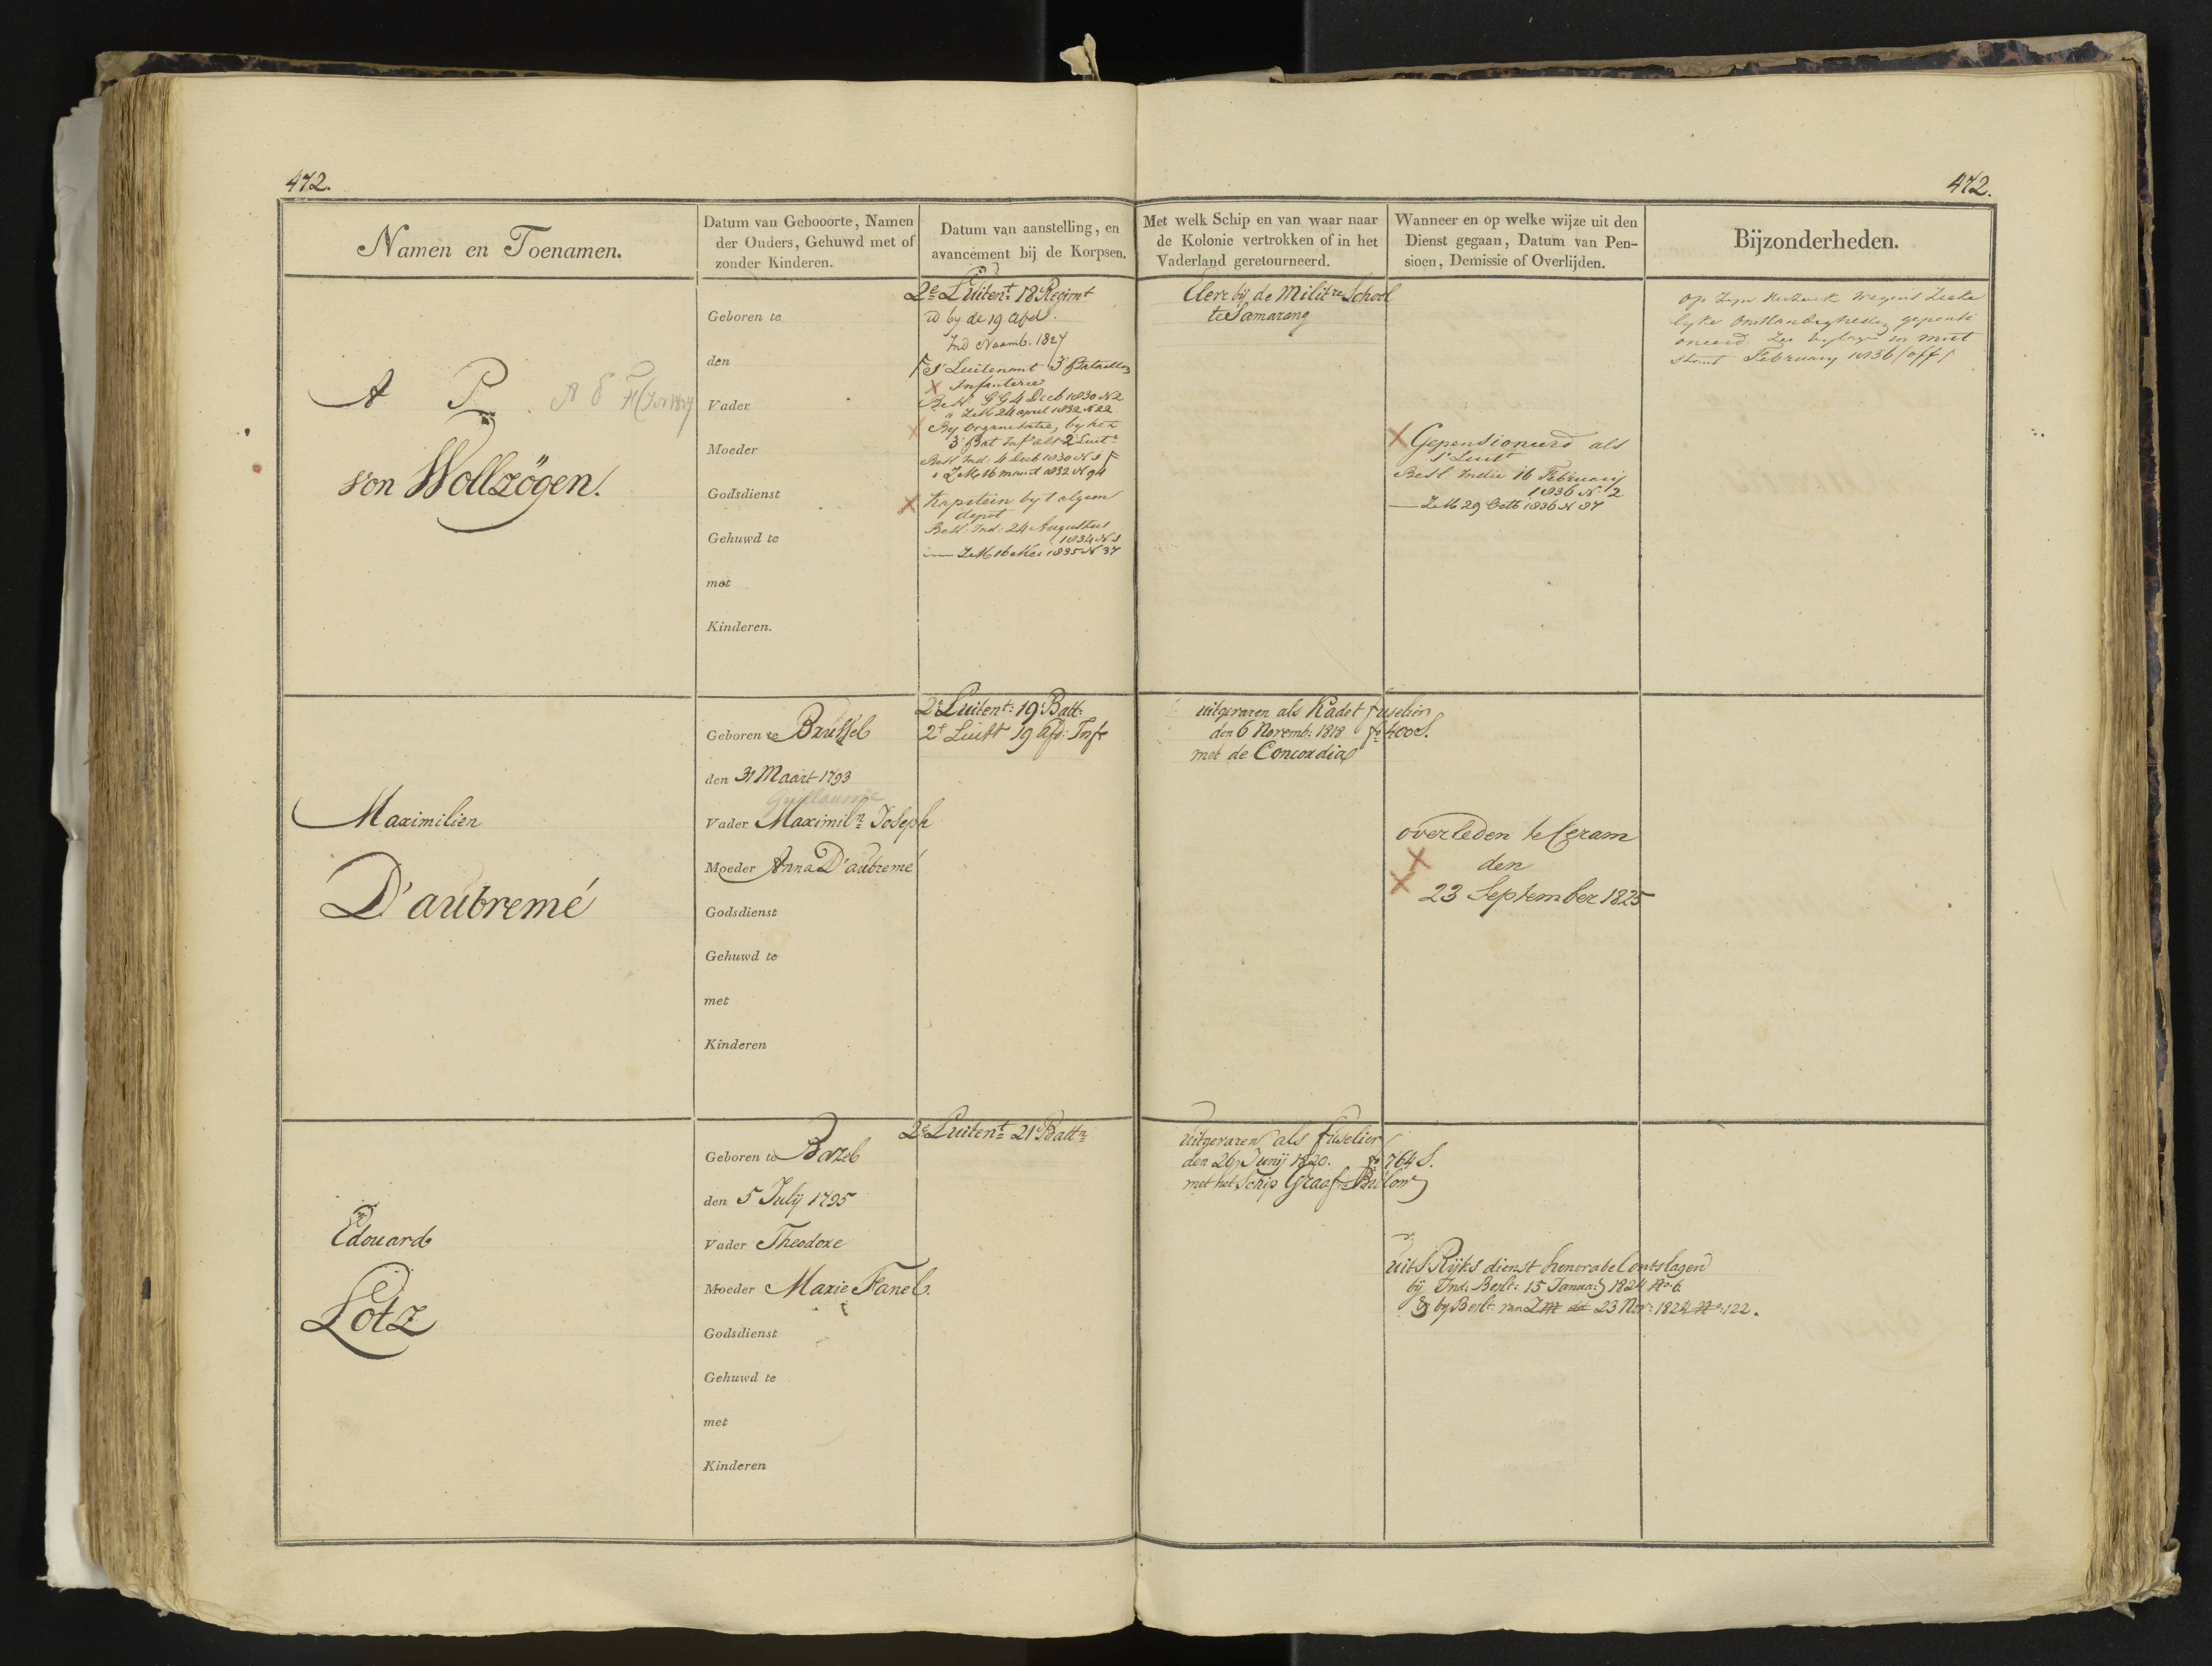 472.
472.
Namen en Toenamen.
Datum van Gebooorte, Namen
der Ouders, Gehuwd met of
zonder Kinderen.
Datum van aanstelling, en
avancement bij de Korpsen.
Met welk Schip en van waar naar
de Kolonie vertrokken of in het
Vaderland geretourneerd.
Wanneer en op welke wijze uit den
Dienst gegaan, Datum van Pen-
sioen, Demissie of Overlijden.
Bijzonderheden.
A P.
von Wollzögen.
Geboren te
den
Vader
Moeder
Godsdienst
Gehuwd te
met
Kinderen.
2e Luitent 18 Regimt
id by de 19 Afd.
Ind Naaml. 1827
1e Luitenant 3e Bataillon
Infanterie
Besl. GG 4 Decb 1830 N 2
" ZM 24 april 1832 N 22
By organisatie, by het
3e Bat Inf als 2e Luit
Besl Ind: 4 Decb 1830 N 1
" ZM 16 maart 1832 N 94
Kapitein by 't algem
depot
Besl: Ind: 24 Augustus
1834 N 1
— ZM 16 Mei 1835 N 37
Elere bij de Militre School
te Samarang
Gepensioneerd als
1e Luitt
Besl. Indie 16 Februarij
1836 N 2
— ZM 29 Octb 1836 N 87
op zyn verzoek wegens zieke
lyke omstandigheden gepensi
oneerd zie bylage in mut
staat February 1836 (off)
Maximilien
D'aubremé
Geboren te Brussel
den 31 Maart 1793
Guillaume
Vader Maximiln Joseph
Moeder Anna D'aubremé
Godsdienst
Gehuwd te
met
Kinderen
2e Luitent: 19 Batt:
2e Luitt 19 Afd: Infe
uitgevaren als Kadet Fuselier
den 6 Novemb: 1818 fo 400 S.
met de Concordia
overleden te Ceram
den
23 September 1825
Edouard
Lotz
Geboren te Bazel
den 5 Julij 1795
Vader Theodore
Moeder Marie Fanel.
Godsdienst
Gehuwd te
met
Kinderen
2e Luitent 21e Battn
Uitgevaren als fuselier
den 26 Junij 1820. fo 764 S.
met het Schip Graaf Bulow
Uit S Rijks dienst honorabel ontslagen
bij Ind: Beslt: 15 Janua: 1824 No 6.
& by Beslt: van ZM dd 23 Nov: 1824 No 122.